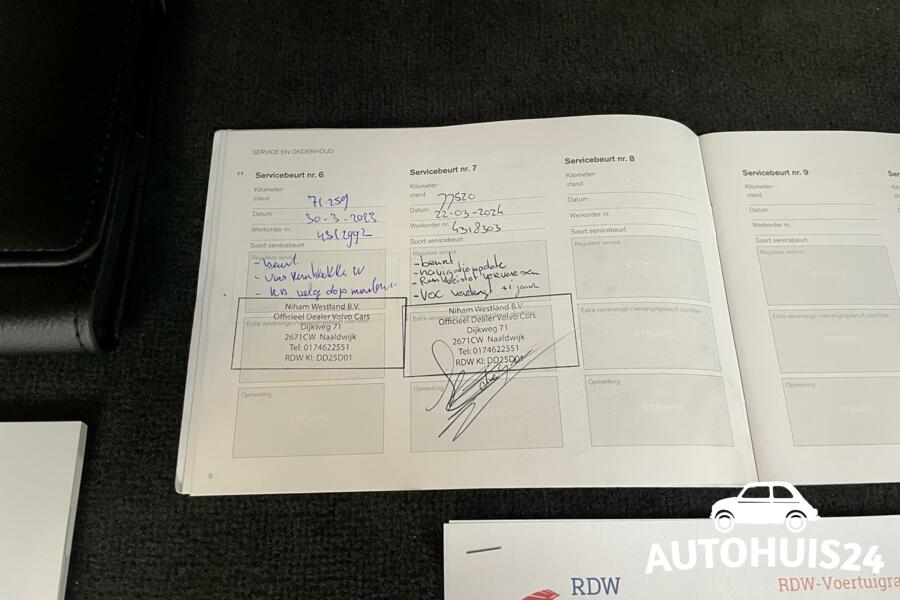 SERVICE EN ONDERHOUD
Servicebeurt nr. 6
Kilometer-
stand
71.259
Datum
30-3-2023
Werkorder nr.
Soort servicebeurt
Reguliere service
- beurt
Niham Westland B.V.
Officieel Dealer Volvo Cars
Dijkweg 71
2671CW Naaldwijk
Tel: 0174622551
RDW KI: DD25D01
Opmerking
STEMPEL
8
Servicebeurt nr. 7
Kilometer-
stand
77520
Datum
22-03-2024
Werkorder nr.
4318303
Soort servicebeurt
Reguliere service
- beurt
- navigatie update
- Remvloeistof verversen
- VOC verlengt +1 jaar
Niham Westland B.V.
Officieel Dealer Volvo Cars
Dijkweg 71
2671CW Naaldwijk
Tel: 0174622551
RDW KI: DD25D01
Opmerking
Servicebeurt nr. 8
Kilometer-
stand
Datum
Werkorder nr.
Soort servicebeurt
Reguliere service
STEMPEL
Extra verversings-/vervangingsbeurt olie/filter
STEMPEL
Opmerking
STEMPEL
Servicebeurt nr. 9
Kilometer-
stand
Datum
Werkorder nr.
Soort servicebeurt
Reguliere service
STEMPEL
Extra verversings-/vervangingsbeurt olie/filter
STEMPEL
Opmerking
STEMPEL
RDW
RDW-Voertuigra
AUTOHUIS24